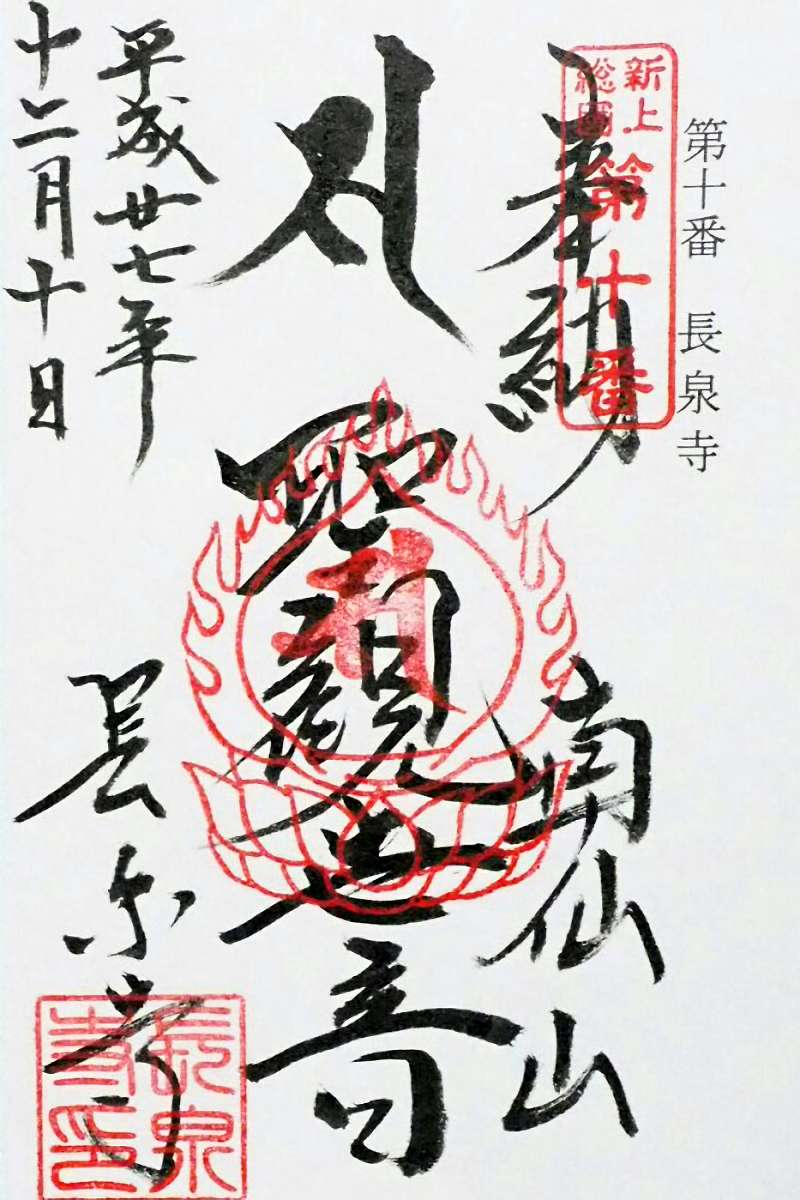 第十番 長泉寺
新上総國
第十番
奉納
南仙山
聖觀世音
平成廿七年
十二月十日
長泉寺
長泉寺印